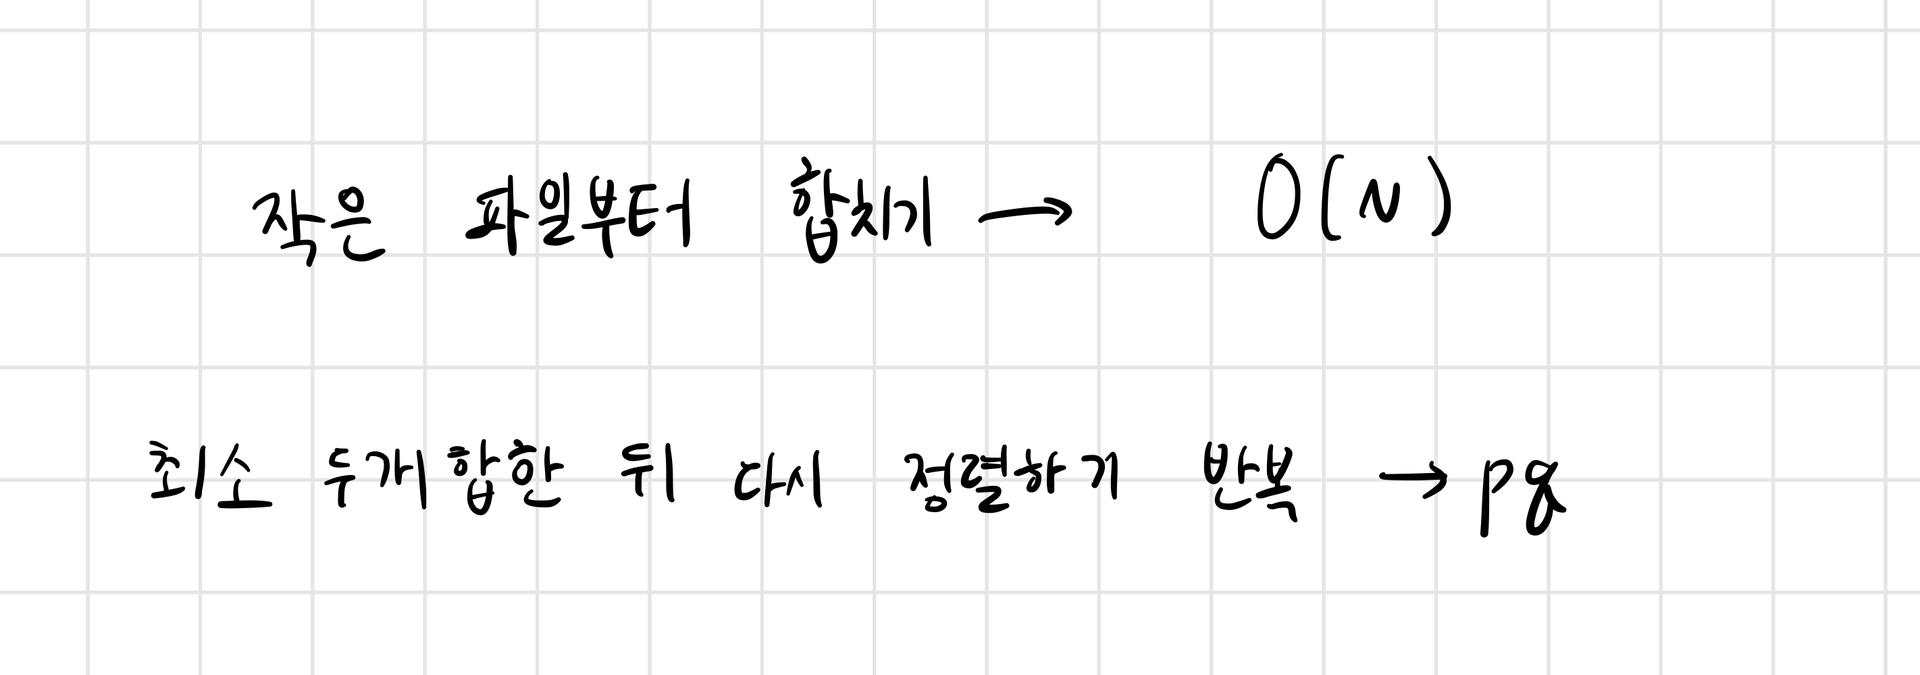 작은 파일부터 합치기 → O(N)
최소 두개합한 뒤 다시 정렬하기 반복 → pq